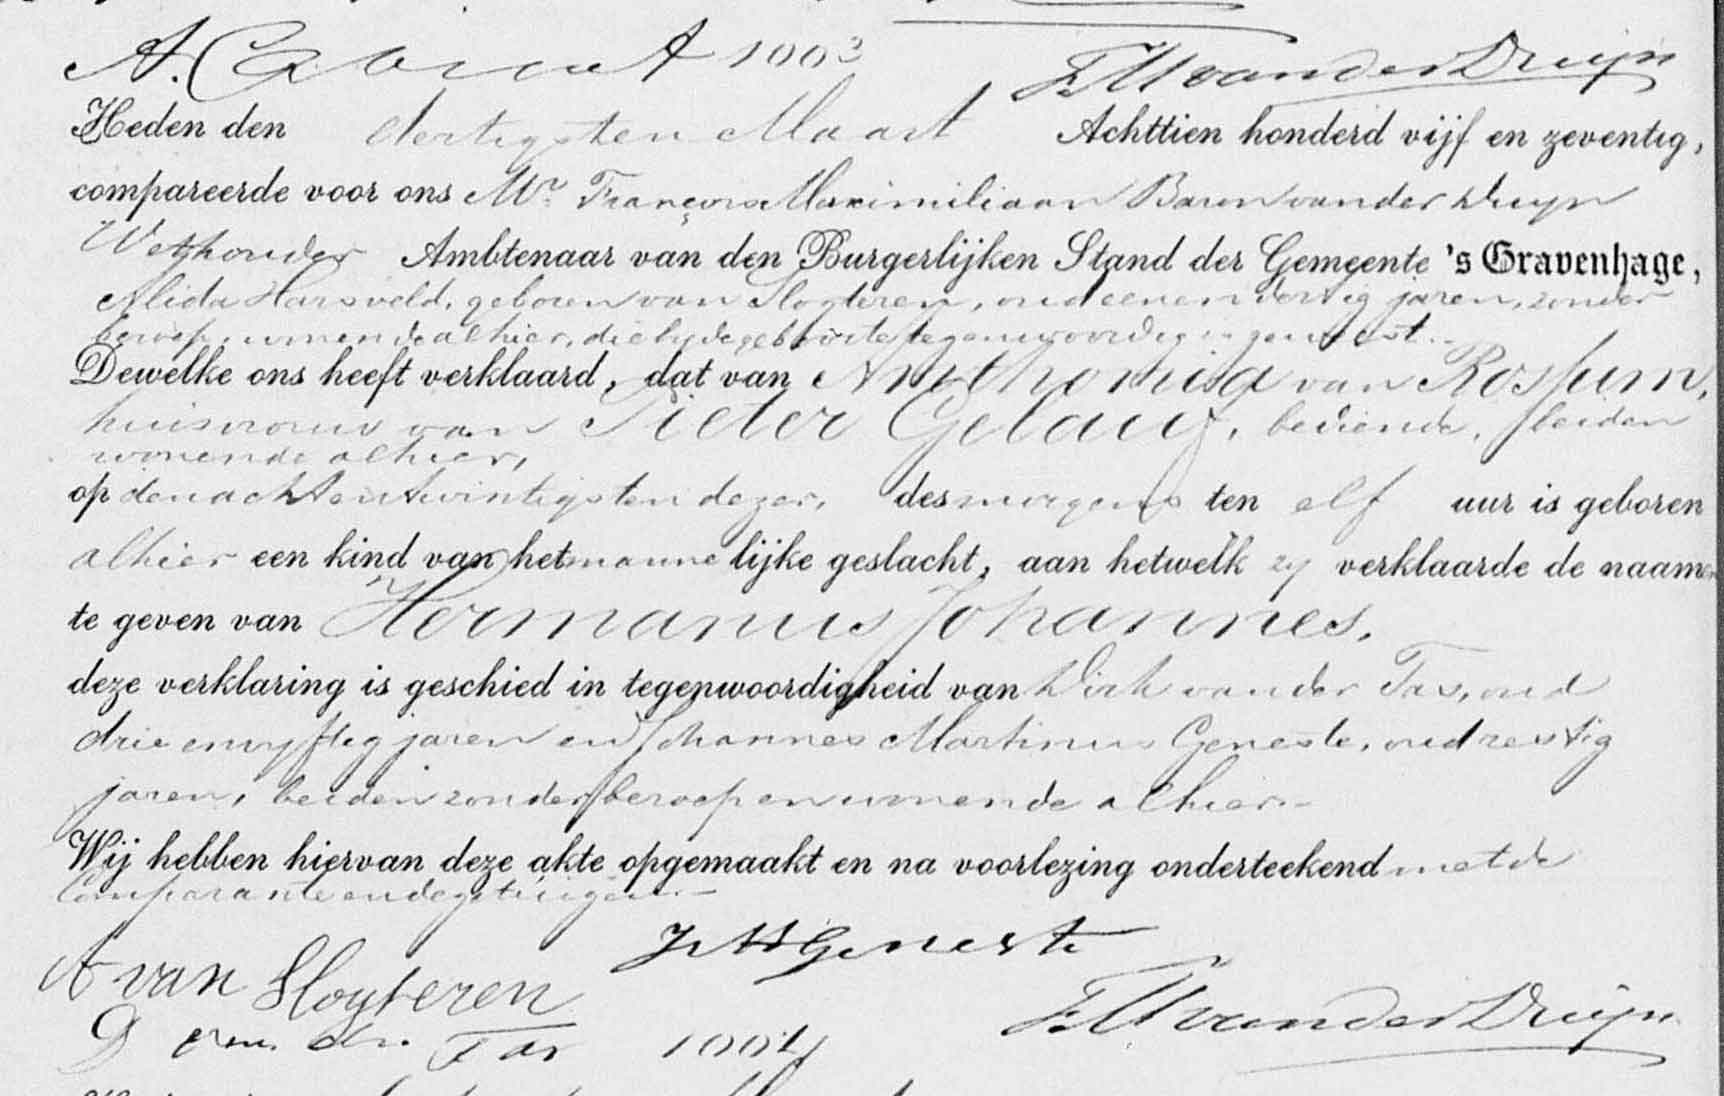 A. 1003 FM van der Duijn
Heden den dertigsten Maart Achttien honderd vijf en zeventig,
compareerde voor ons Mr. François Maximiliaan Baron van der Duyn
Wethouder Ambtenaar van den Burgerlijken Stand der Gemeente 's Gravenhage,
Alida Harsveld, geboren van Slogteren, oud eenendertig jaren, zonder
beroep, wonende alhier, die by de geboorte tegenwoordig is geweest.
Dewelke ons heeft verklaard, dat van Anthonia van Rossum,
huisvrouw van Pieter Gelauf, bediende, beiden
wonende alhier,
op den achtentwintigsten dezer, des morgens ten elf uur is geboren
alhier een kind van het mannelijke geslacht, aan hetwelk zy verklaarde de naamen
te geven van Hermanus Johannes.
deze verklaring is geschied in tegenwoordigheid van Dirk van der Tas, oud
drieenvyftig jaren en Johannes Martinus Geneste, oud zestig
jaren, beiden zonder beroep en wonende alhier.
Wij hebben hiervan deze akte opgemaakt en na voorlezing onderteekend met de
Comparante en de getuigen.
JM Geneste
A van Slogteren
FM van der Duijn
D van der Tas 1004